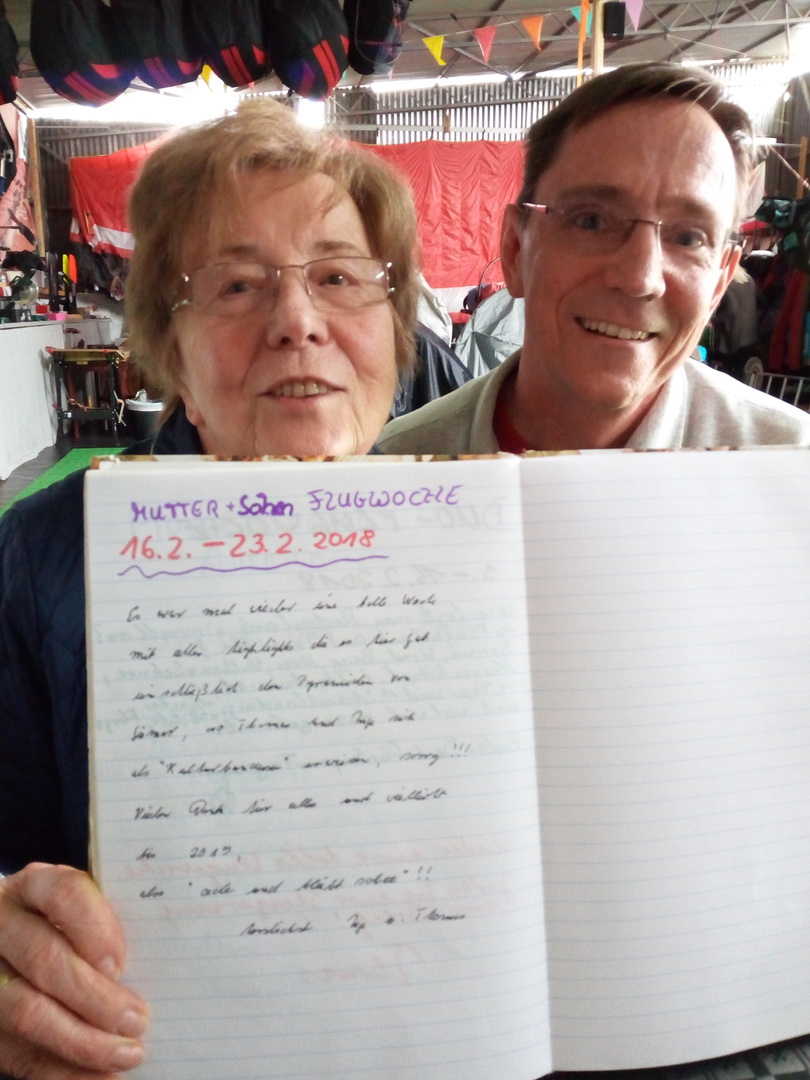 MUTTER + Sohn FLUGWOCHE
16.2. – 23.2. 2018
Es war mal wieder eine tolle Woche
mit allen Highlights die es hier gab
einschließlich den Pyramiden von
Güimar, wo Thomas und sich
als "Kulturbanausen" erwiesen, sorry!!!
Vielen Dank für alles und vielleicht
bis 2019,
also " und bleibt "!!
herzlichst u. Thomas